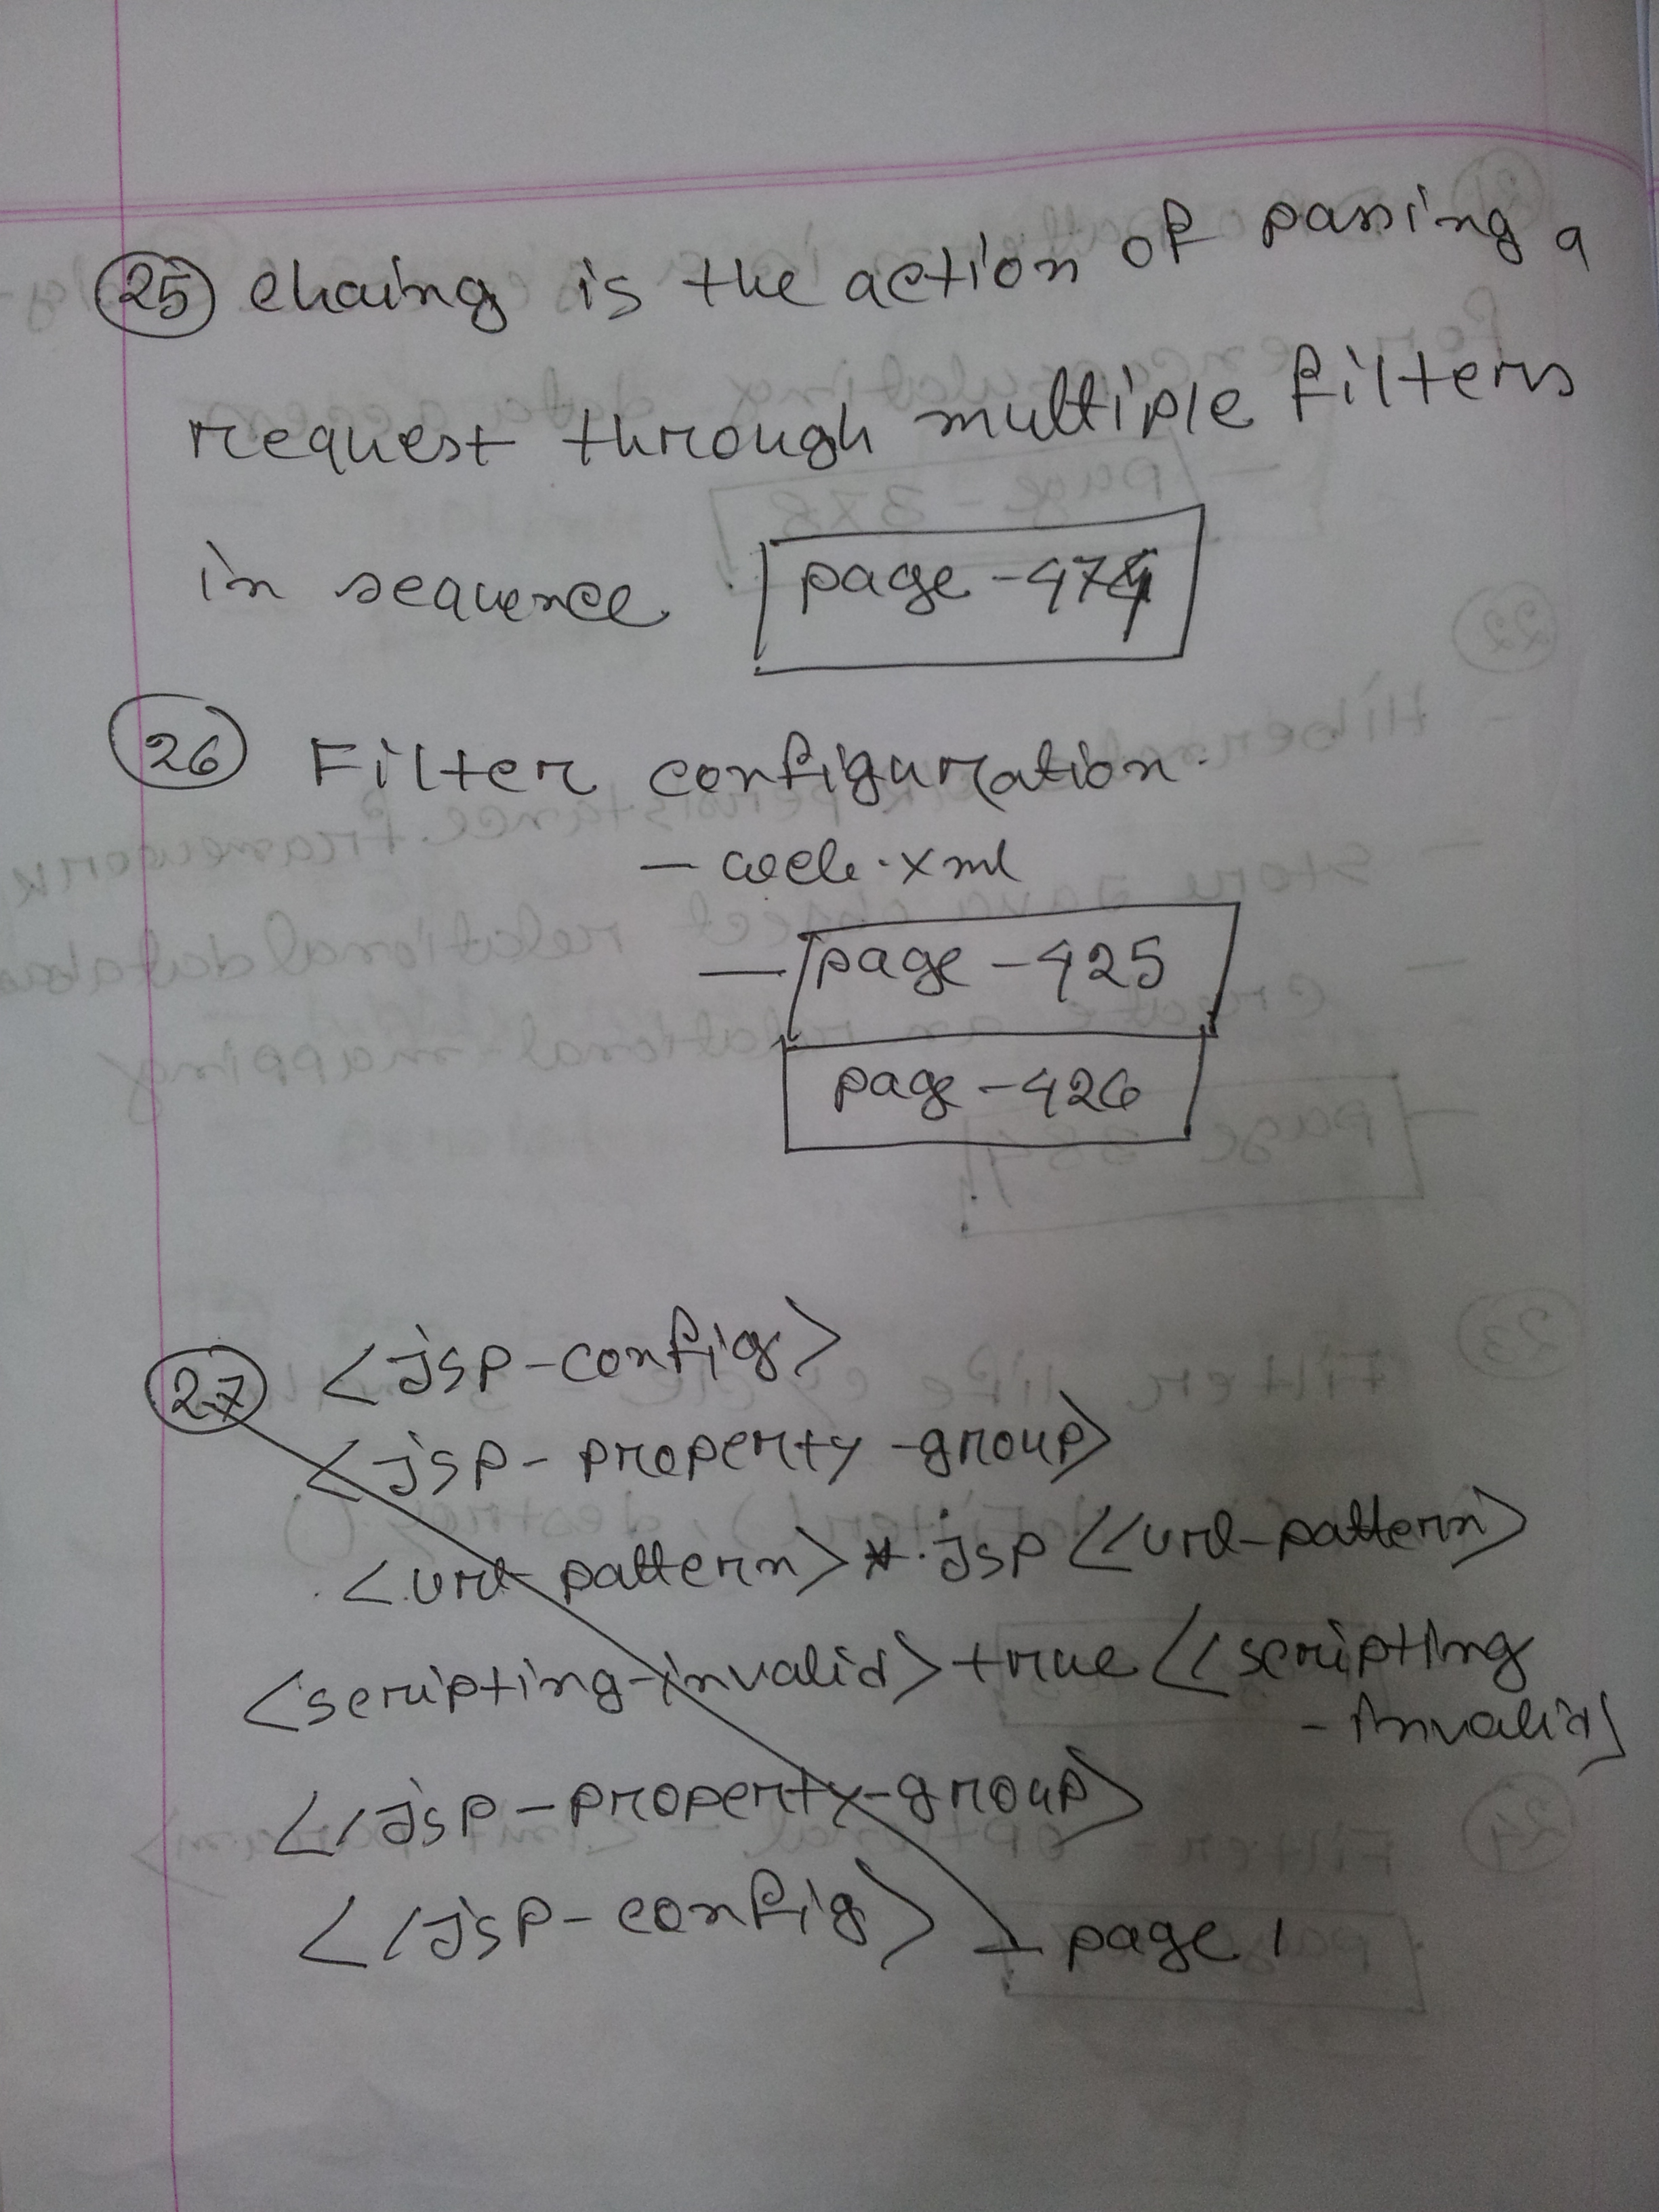 25 chaing is the action of passing a
request through multiple filters
in sequence
page - 474
26 Filter configuration.
- web.xml
- page - 425
page - 426
27 <jsp-config>
<jsp-property-group>
<url-pattern>*.jsp</url-pattern>
<scripting-invalid>true</scripting
-invalid>
</jsp-property-group>
</jsp-config> - page 1